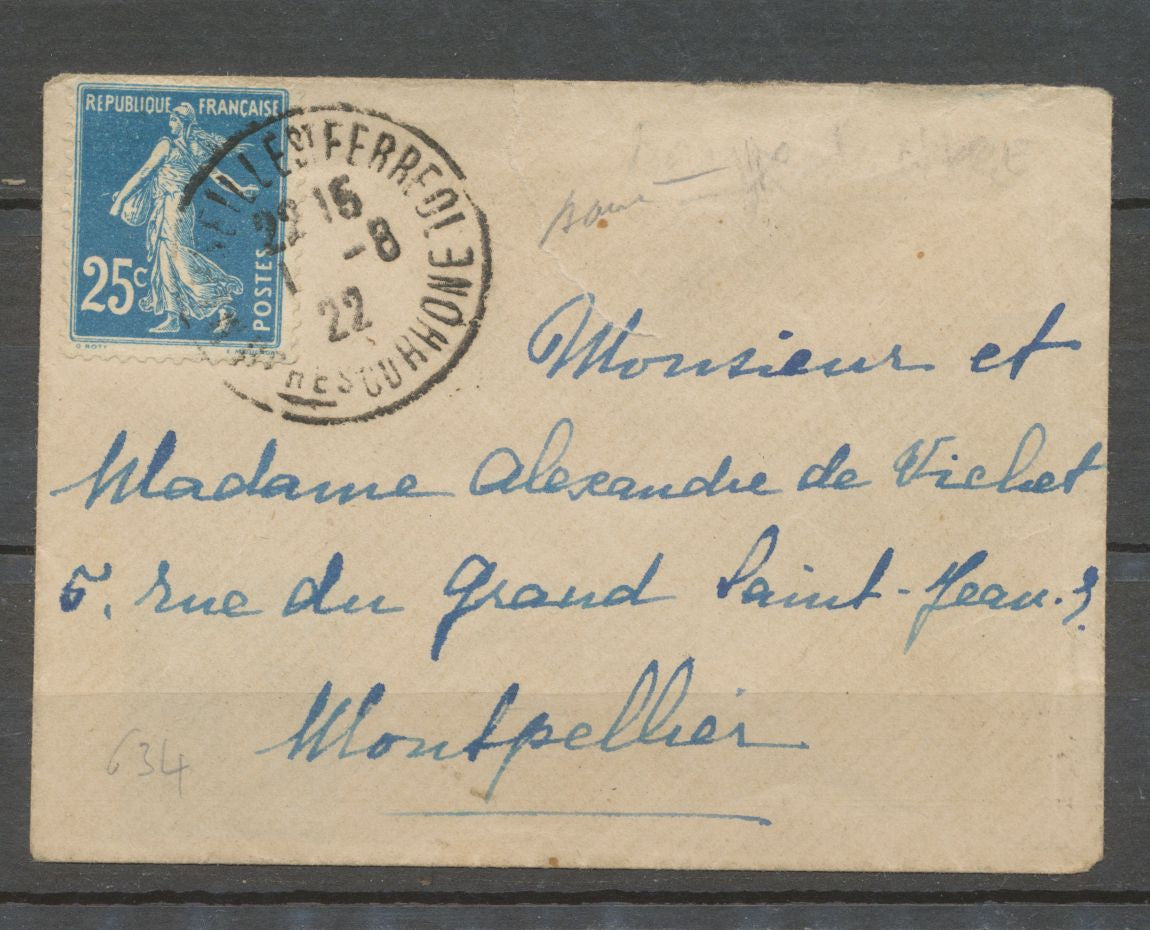 REPUBLIQUE FRANÇAISE
25c
POSTES
O. ROTY
EILLE St FERREOL
22 16
1 -8
22
RHONE
Monsieur et
Madame Alexandre de Vichet
5, rue du Grand Saint-Jean.
Montpellier
634